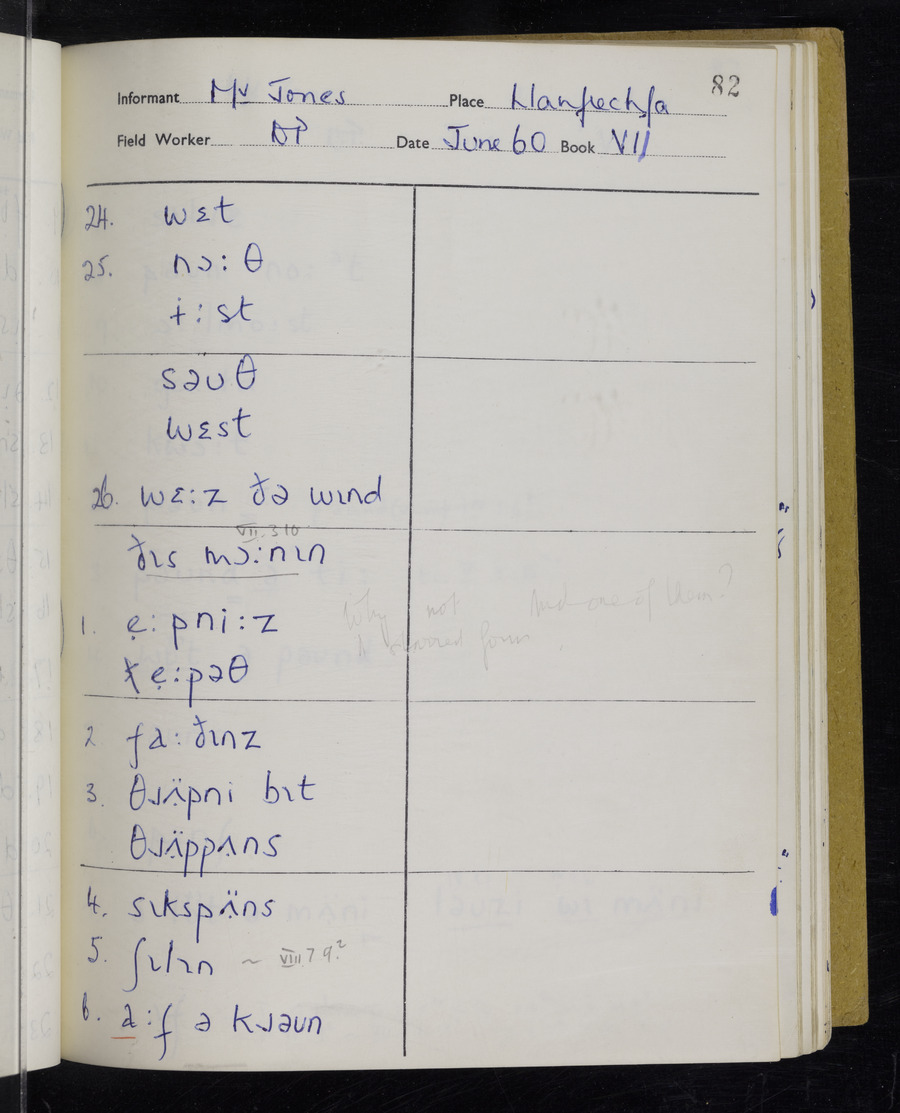 82
Informant Mr Jones Place Llanfrechfa
Field Worker DP Date June 60 Book VII
24. wɛt
25. nɔ: θ
ɨ: st
səʊθ
wɛst
26. wɛ:z ðə wɩnd
VII. 3 10
ðɩs mɔ:nɩn
1. ẹ: pni:z
ẹ:pəθ
Why not and one of them?
form
2 fa:ðɩnz
3. θɹʌ̈pni bɩt
θɹʌ̈ppʌns
4. sɩkspʌ̈ns
5. ʃɩlɩn ~ VIII 7 9.²
6. a:f ə kɹəʊn